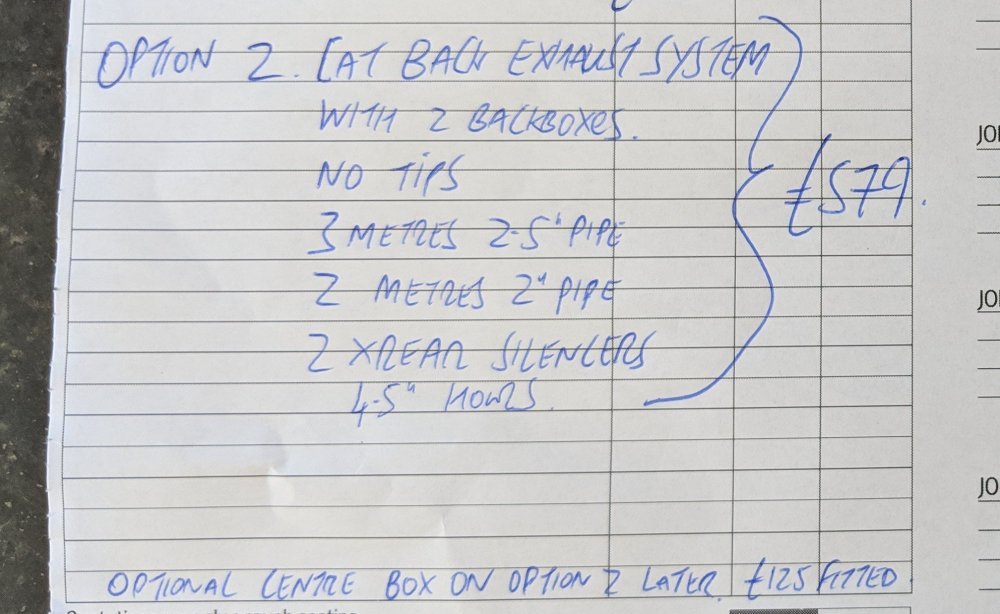 OPTION 2. CAT BACK EXHAUST SYSTEM
WITH 2 BACKBOXES.
NO TIPS
£579.
3 METRES 2-5" PIPE
2 METRES 2" PIPE
2 XREAR SILENCERS
4-5" HOURS.
OPTIONAL CENTRE BOX ON OPTION 2 LATER. £125 FITTED.